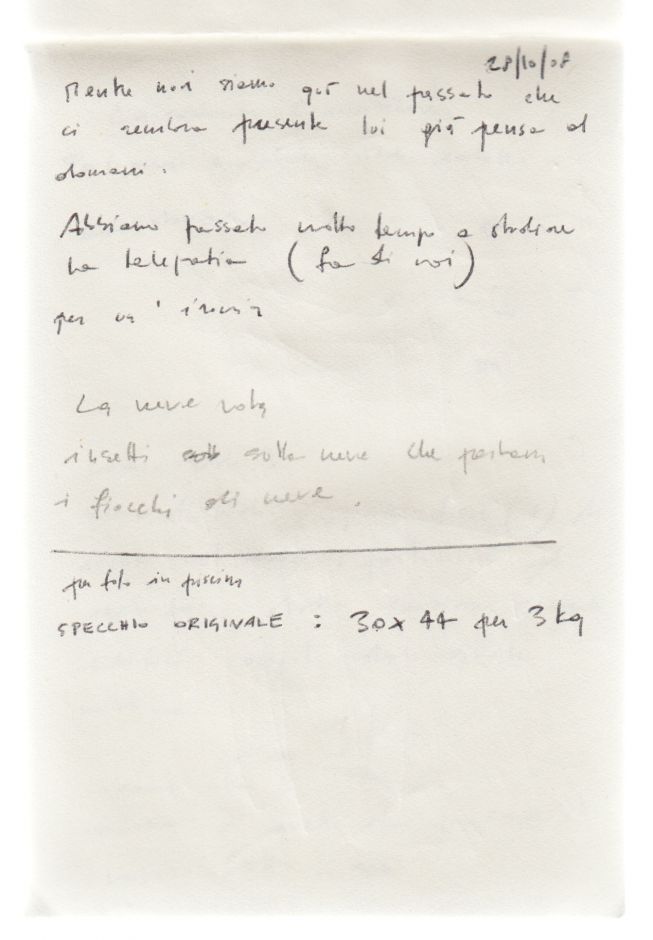 28/10/08
Mentre noi siamo già nel passato che
ci sembra presente lui già pensa al
domani.
Abbiamo passato molto tempo a studiare
la telepatia (fra di noi)
per
La neve vola
insetti sotto neve che portano
i fiocchi di neve.
per foto in piscina
SPECCHIO ORIGINALE : 30x44 per 3 kg